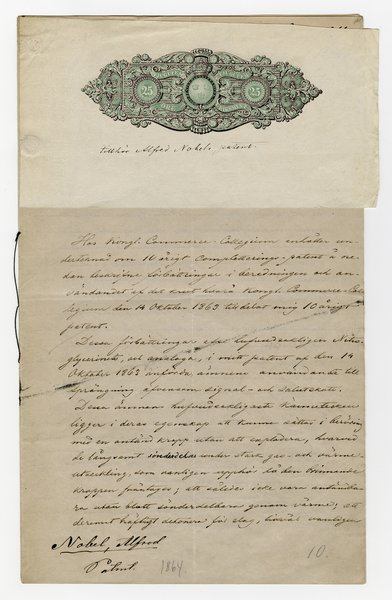 25 25
Tillhör Alfred Nobels patent.
Hos Kongl. Commerce-Collegium anhåller un-
dertecknad om 10 årigt Completterings-patent å ne-
dan beskrifne förbättringar i beredningen och an-
vändandet af det krut hvarå Kongl. Commerce-Col-
legium den 14 Oktober 1863 tilldelat mig 10 årigt
patent.
Dessa förbättringar afse hufvudsakligen Nitro-
glycerinets, och analoga, i mitt patent af den 14
Oktober 1863 anförda ämnens användande till
sprängning äfvensom signal- och salutskott.
Dessa ämnens hufvudsakligaste kännetecken
ligger i deras egenskap att kunna sättas i beröring
med en antänd kropp utan att explodera, hvarvid
de långsamt sönderdelas under stark gas- och värme-
utveckling, som vanligen upphör då den brinnande
kroppen fråntages; att således icke vara antändba-
ra utan blott sönderdelbara genom värme; att
deremot häftigt detonera för slag, hvaraf vanligen
Nobel, Alfred
Sthlm.
1864.
10.